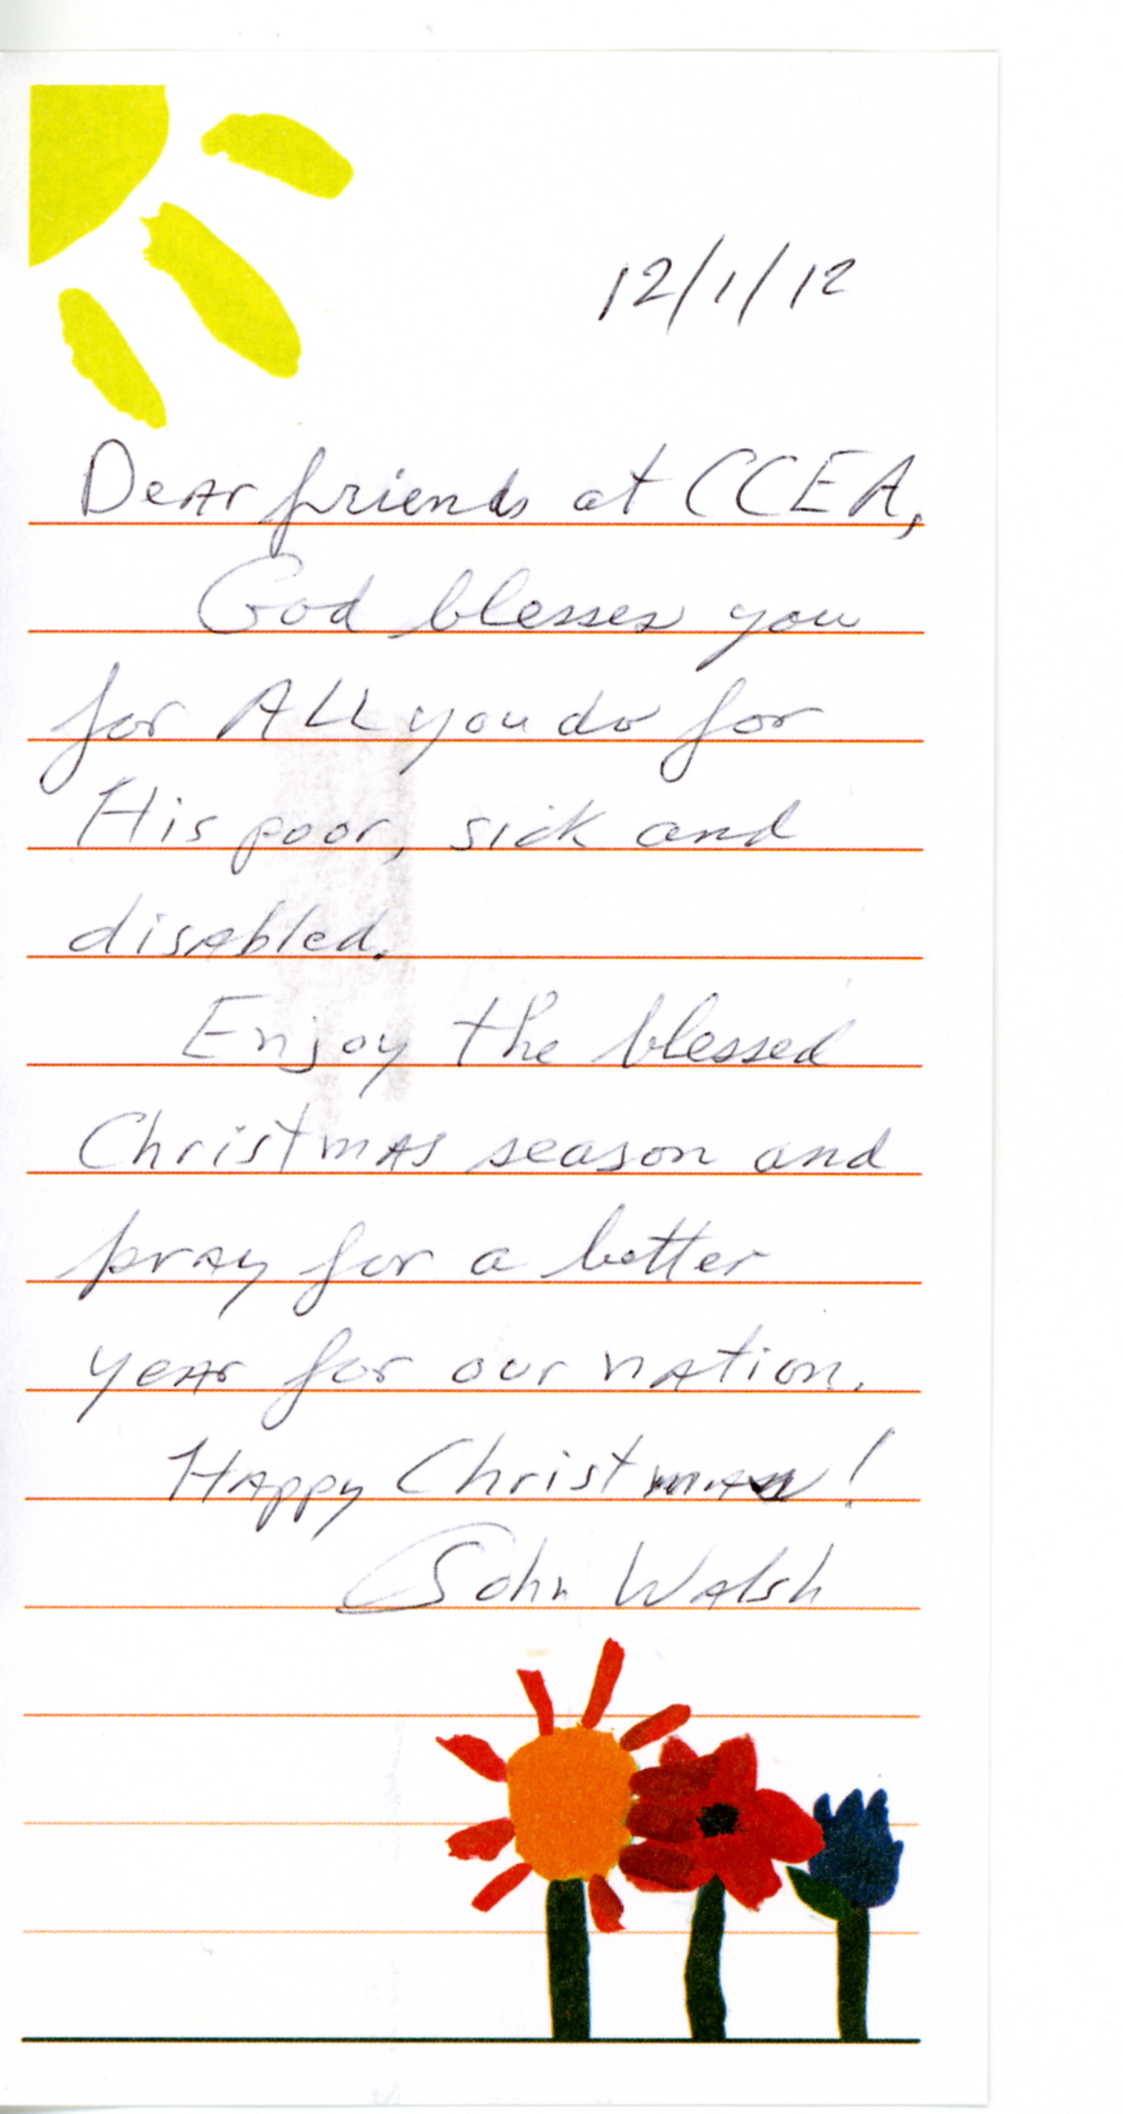 12/1/12
Dear friends at CCEA,
God blesses you
for ALL you do for
His poor, sick and
disabled.
Enjoy the blessed
Christmas season and
pray for a better
year for our nation.
Happy Christmas!
John Walsh